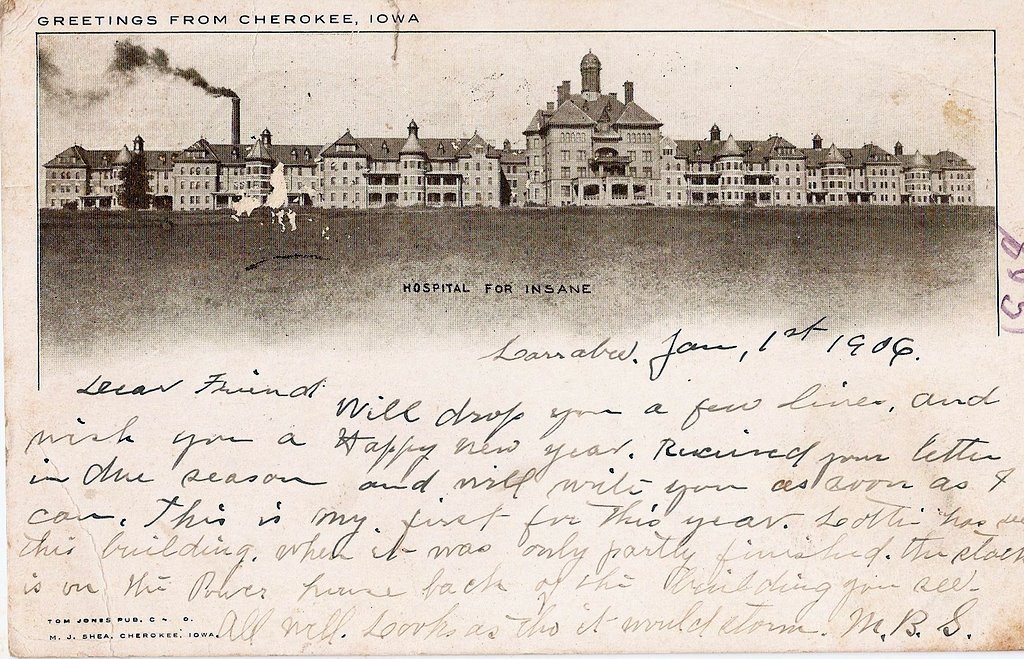 GREETINGS FROM CHEROKEE, IOWA
HOSPITAL FOR INSANE
Larrabee. Jan, 1st 1906.
Dear Friend
Will drop you a few lines, and
wish you a Happy new year. Received your letter
in due season and will write you as soon as I
can. This is my first for this year. Lottie has see
this building, when it was only partly finished. the stack
is on the Power house back of the building you see.
All well. Looks as tho it would storm. M.B.S.
TOM JONES PUB. C - O.
M. J. SHEA, CHEROKEE, IOWA.